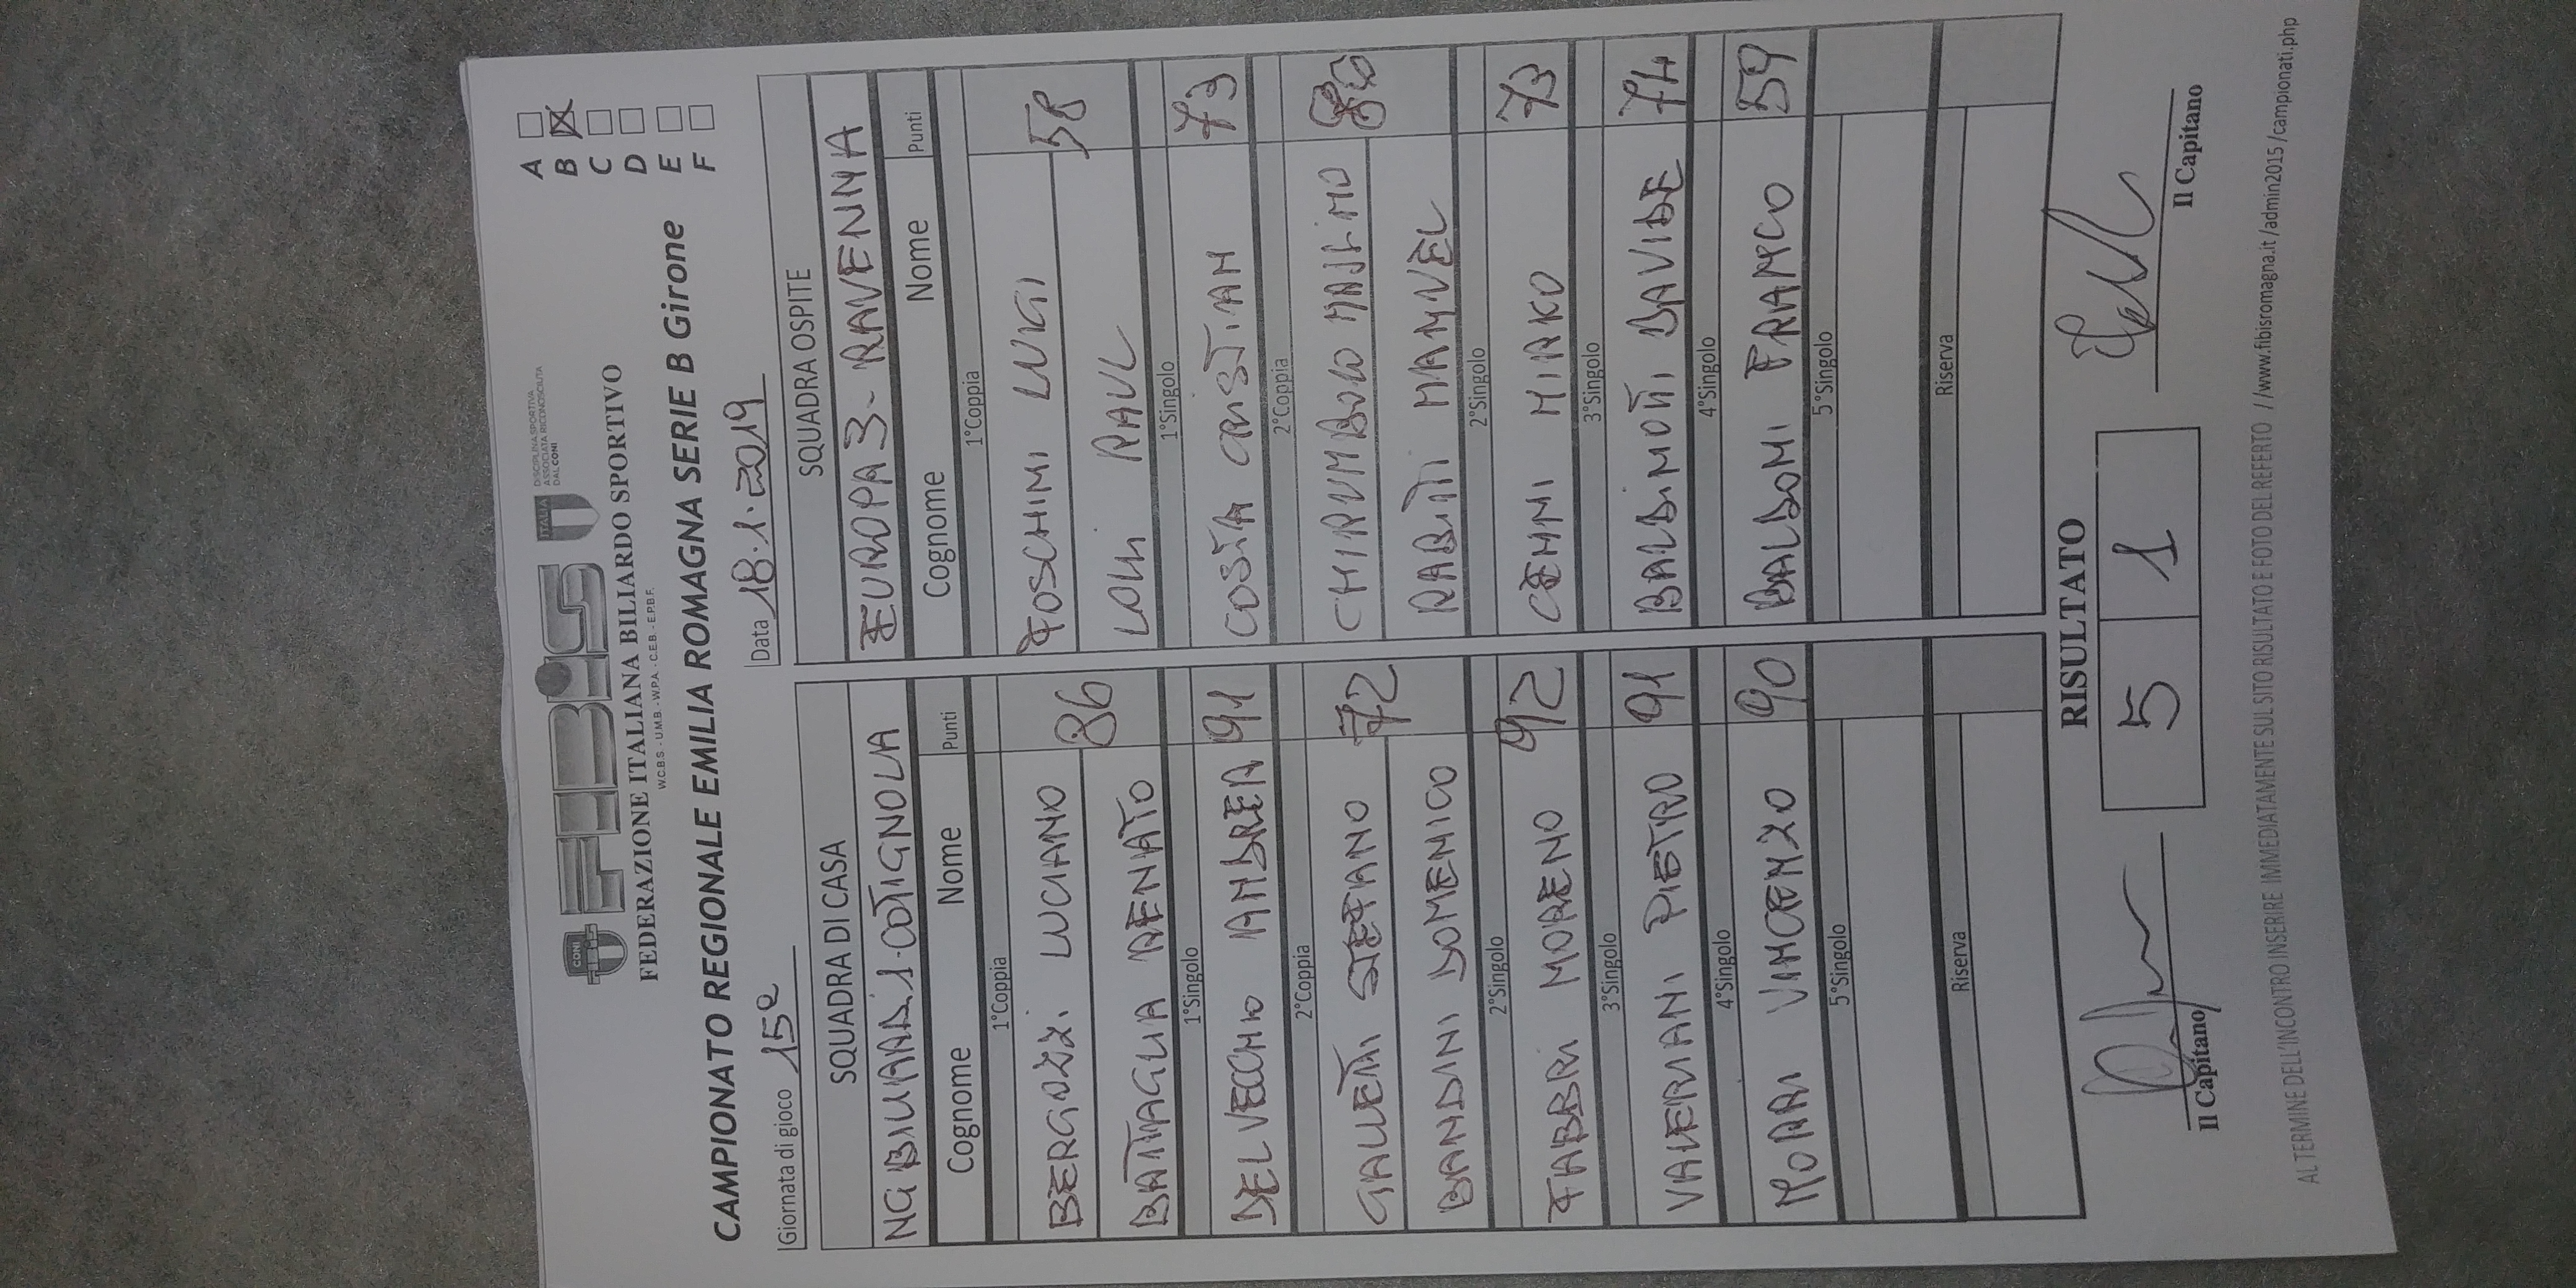 FIBiS
CONI
ITALIA
DISCIPLINA SPORTIVA
ASSOCIATA RICONOSCIUTA
DAL CONI
FEDERAZIONE ITALIANA BILIARDO SPORTIVO
W.C.B.S. - U.M.B. - W.P.A. - C.E.B. - E.P.B.F.
CAMPIONATO REGIONALE EMILIA ROMAGNA SERIE B Girone
A
B
C
D
E
F
Giornata di gioco 15ª
Data 18.1.2019
SQUADRA DI CASA
NG BILIARDI 1 - COTIGNOLA
Cognome Nome Punti
1°Coppia
BERGOZZI LUCIANO 86
BATTAGLIA RENATO
1°Singolo
DEL VECCHIO ANDREA 91
2°Coppia
GALLETTI STEFANO 72
BANDINI DOMENICO
2°Singolo
FABBRI MORENO 92
3°Singolo
VALERIANI PIETRO 91
4°Singolo
MORRI VINCENZO 90
5°Singolo
Riserva
SQUADRA OSPITE
EUROPA 3 - RAVENNA
Cognome Nome Punti
1°Coppia
FOSCHINI LUIGI 58
LOLLI RAUL
1°Singolo
COSTA CRISTIAN 73
2°Coppia
CHIRUMBOLO MASSIMO
RABITTI MANUEL
2°Singolo
CENNI MIRKO 73
3°Singolo
BALDINOTTI DAVIDE 74
4°Singolo
BALDONI FRANCO 59
5°Singolo
Riserva
RISULTATO
5 1
Il Capitano
Il Capitano
AL TERMINE DELL'INCONTRO INSERIRE IMMEDIATAMENTE SUL SITO RISULTATO E FOTO DEL REFERTO //www.fibisromagna.it/admin2015/campionati.php